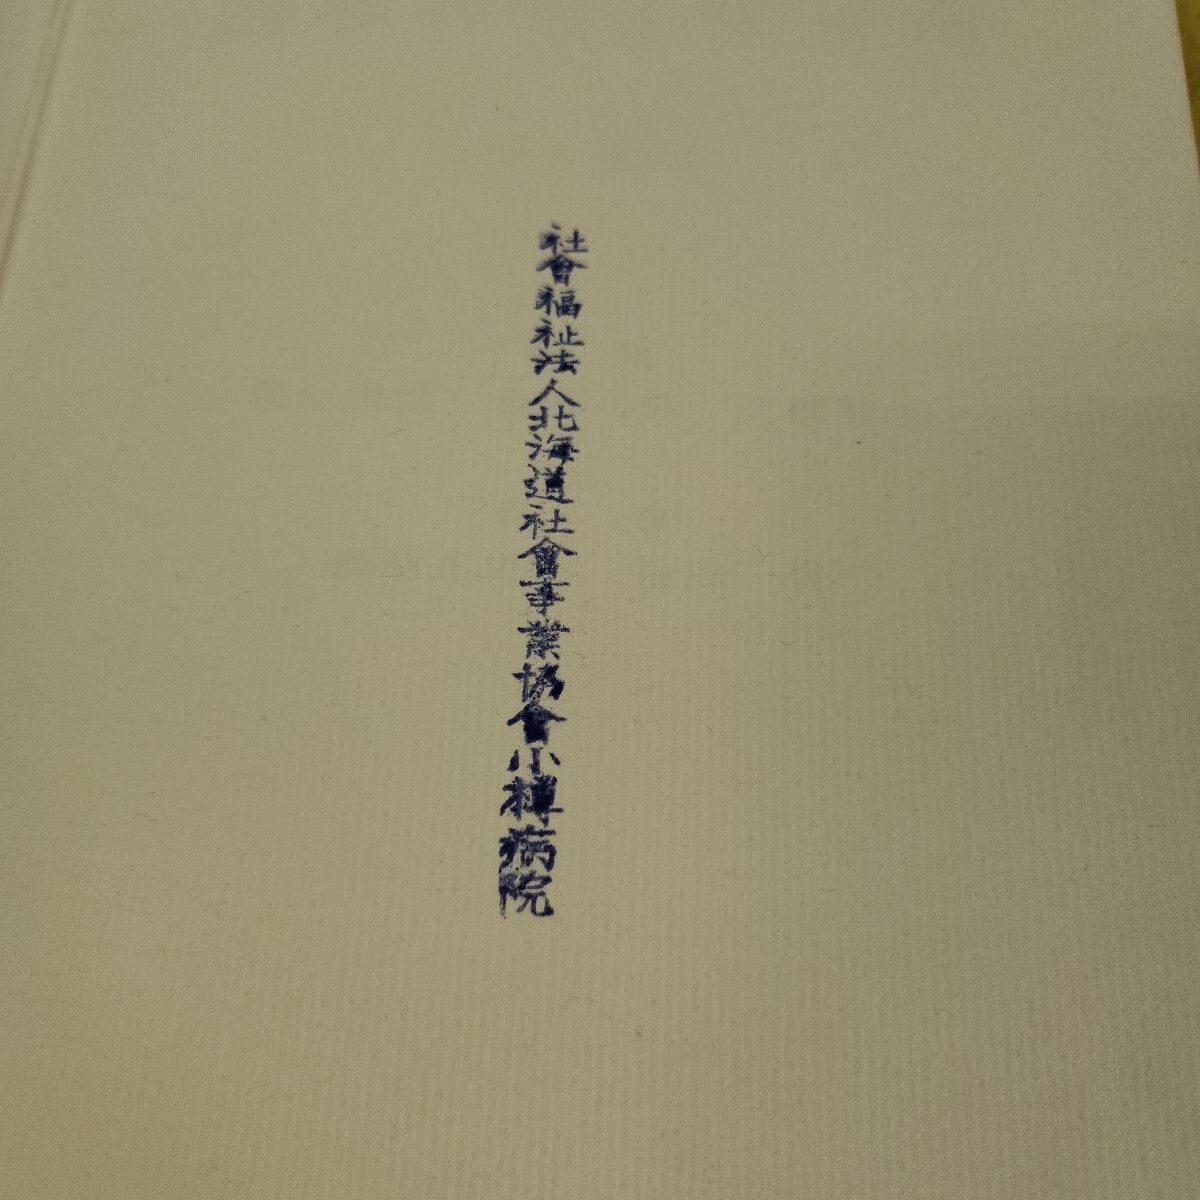 社會福祉法人北海道社會事業協會小樽病院